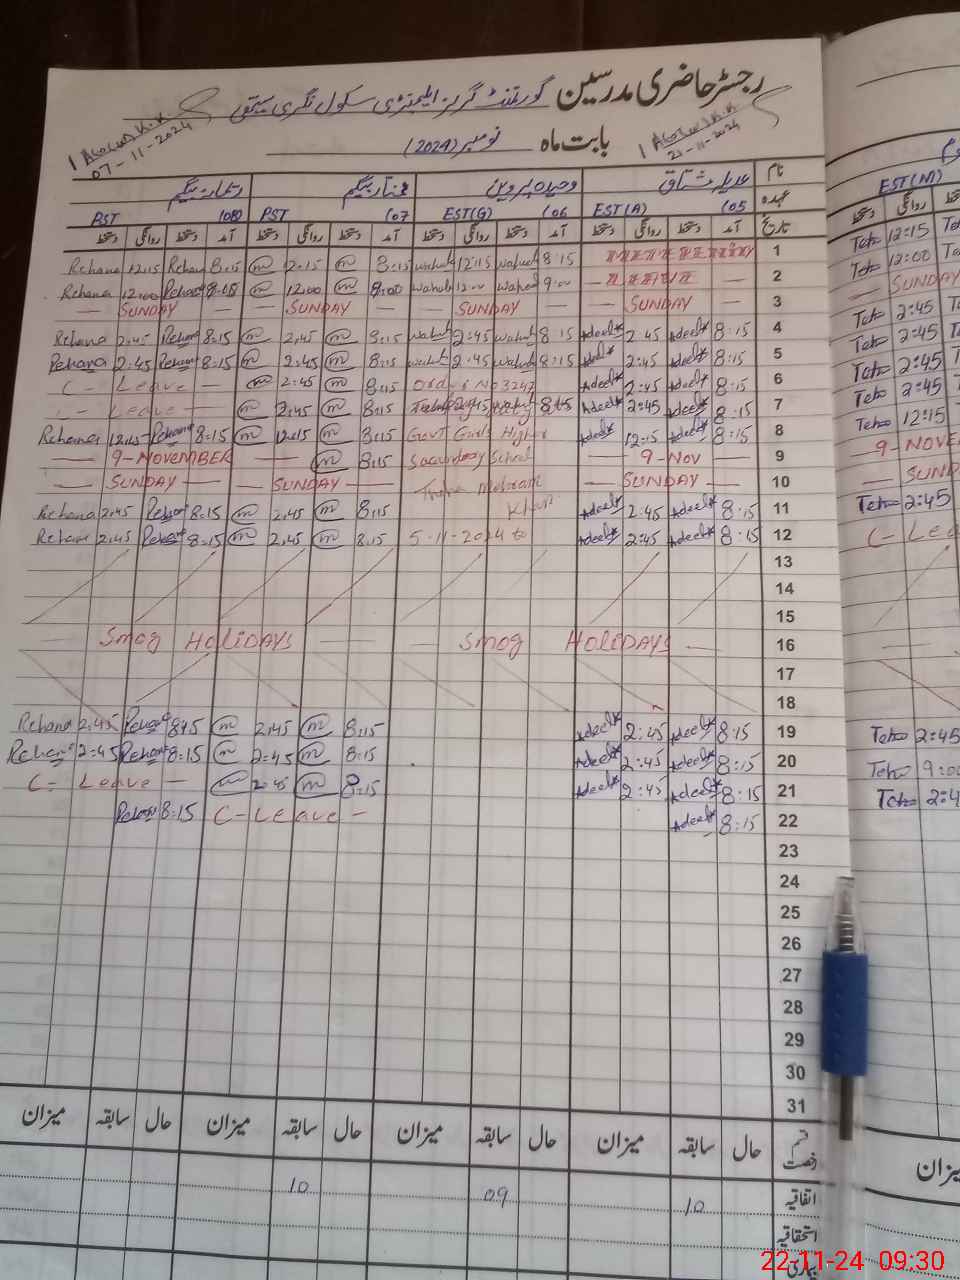 رجسٹر حاضری مدرسین گورنمنٹ گرلز ایلیمنٹری سکول نگری
07-11-2024
بابت ماہ نومبر (2024)
21-11-2024
نام عدیلہ مشتاق وحیدہ پروین مختار بیگم ریحانہ بیگم
عہدہ EST(A) (05 EST(G) (06 PST (07 PST (08 EST(M)
تاریخ آمد دستخط روانگی دستخط آمد دستخط روانگی دستخط آمد دستخط روانگی دستخط آمد دستخط روانگی دستخط روانگی دستخط
Rehana 12:15 Rehana 8:15 m 2:15 m 8:15 Wahid 12:15 Wahid 8:15 1 Teh 12:15
Rehana 12:00 Rehana 8:15 m 12:00 m 8:00 Wahid 12:00 Wahid 9:00 2 Teh 12:00
— SUNDAY — SUNDAY — SUNDAY — SUNDAY — 3 — SUNDAY
Rehana 2:45 Rehana 8:15 m 2:45 m 8:15 Wahid 2:45 Wahid 8:15 Adeela 2:45 Adeela 8:15 4 Teh 2:45
Rehana 2:45 Rehana 8:15 m 2:45 m 8:15 Wahid 2:45 Wahid 8:15 Adeela 2:45 Adeela 8:15 5 Teh 2:45
C- Leave — m 2:45 m 8:15 Order No 3247 Adeela 2:45 Adeela 8:15 6 Teh 2:45
C- Leave — m 2:45 m 8:15 2:45 8:15 Adeela 2:45 Adeela 8:15 7 Teh 2:45
Rehana 12:15 Rehana 8:15 m 12:15 m 8:15 Govt Girls Higher Adeela 12:15 Adeela 8:15 8 Teh 12:15
— 9-NOVEMBER — m 8:15 Secondary School — 9-NOV — 9 9-NOVE
— SUNDAY — SUNDAY — SUNDAY — 10 — SUND
Rehana 2:45 Rehana 8:15 m 2:45 m 8:15 Khan Adeela 2:45 Adeela 8:15 11 Teh 2:45
Rehana 2:45 Rehana 8:15 m 2:45 m 8:15 5-11-2024 to Adeela 2:45 Adeela 8:15 12 C- Lea
13
14
15
— Smog HOLIDAYS — — Smog HOLIDAYS — 16
17
18
Rehana 2:45 Rehana 8:15 m 2:45 m 8:15 Adeela 2:45 Adeela 8:15 19 Teh 2:45
Rehana 2:45 Rehana 8:15 m 2:45 m 8:15 Adeela 2:45 Adeela 8:15 20 Teh 9:00
C- Leave — m 2:45 m 8:15 Adeela 2:45 Adeela 8:15 21 Teh 2:4
Rehana 8:15 C- Leave — Adeela 8:15 22
23
24
25
26
27
28
29
30
31
قسم رخصت حال سابقہ میزان حال سابقہ میزان حال سابقہ میزان حال سابقہ میزان میزان
اتفاقیہ 10 09 10
استحقاقیہ
بیماری
22-11-24 09:30